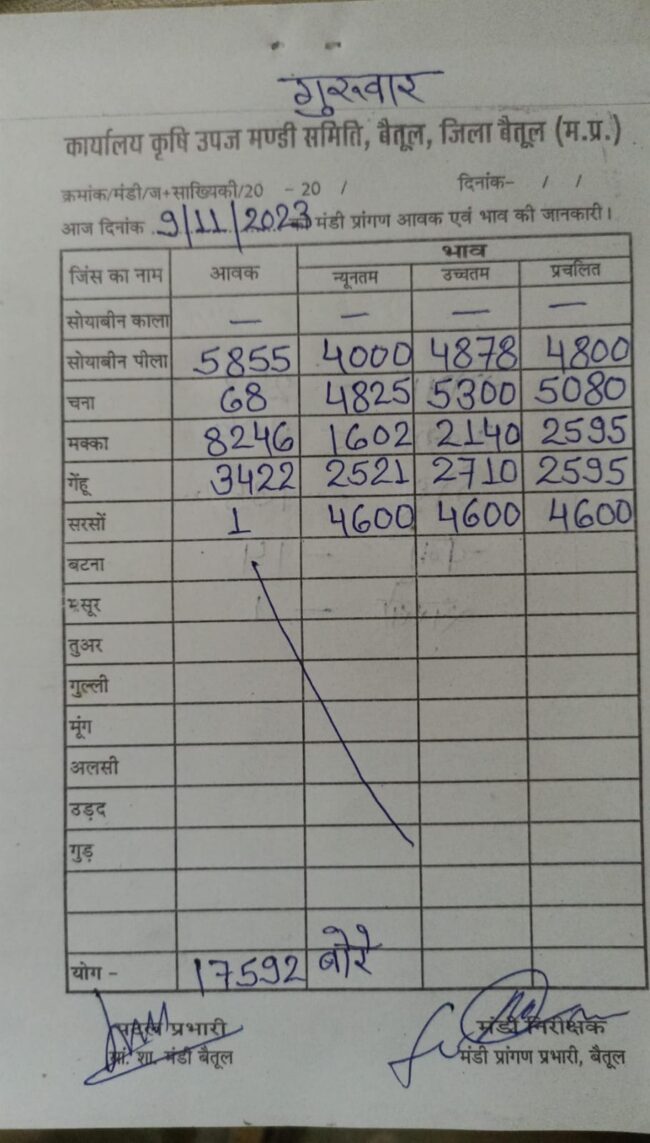 गुरुवार
कार्यालय कृषि उपज मण्डी समिति, बैतूल, जिला बैतूल (म.प्र.)
क्रमांक/मंडी/ज+साख्यिकी/20 - 20 / दिनांक- / /
आज दिनांक 9/11/2023 को मंडी प्रांगण आवक एवं भाव की जानकारी।
जिंस का नाम आवक भाव
न्यूनतम उच्चतम प्रचलित
सोयाबीन काला — — — —
सोयाबीन पीला 5855 4000 4878 4800
चना 68 4825 5300 5080
मक्का 8246 1602 2140 2595
गेंहू 3422 2521 2710 2595
सरसों 1 4600 4600 4600
बटना
मसूर
तुअर
गुल्ली
मूंग
अलसी
उड़द
गुड़
योग - 17592 बोरे
प्रभारी मंडी निरीक्षक
प्रां. शा. मंडी बैतूल मंडी प्रांगण प्रभारी, बैतूल